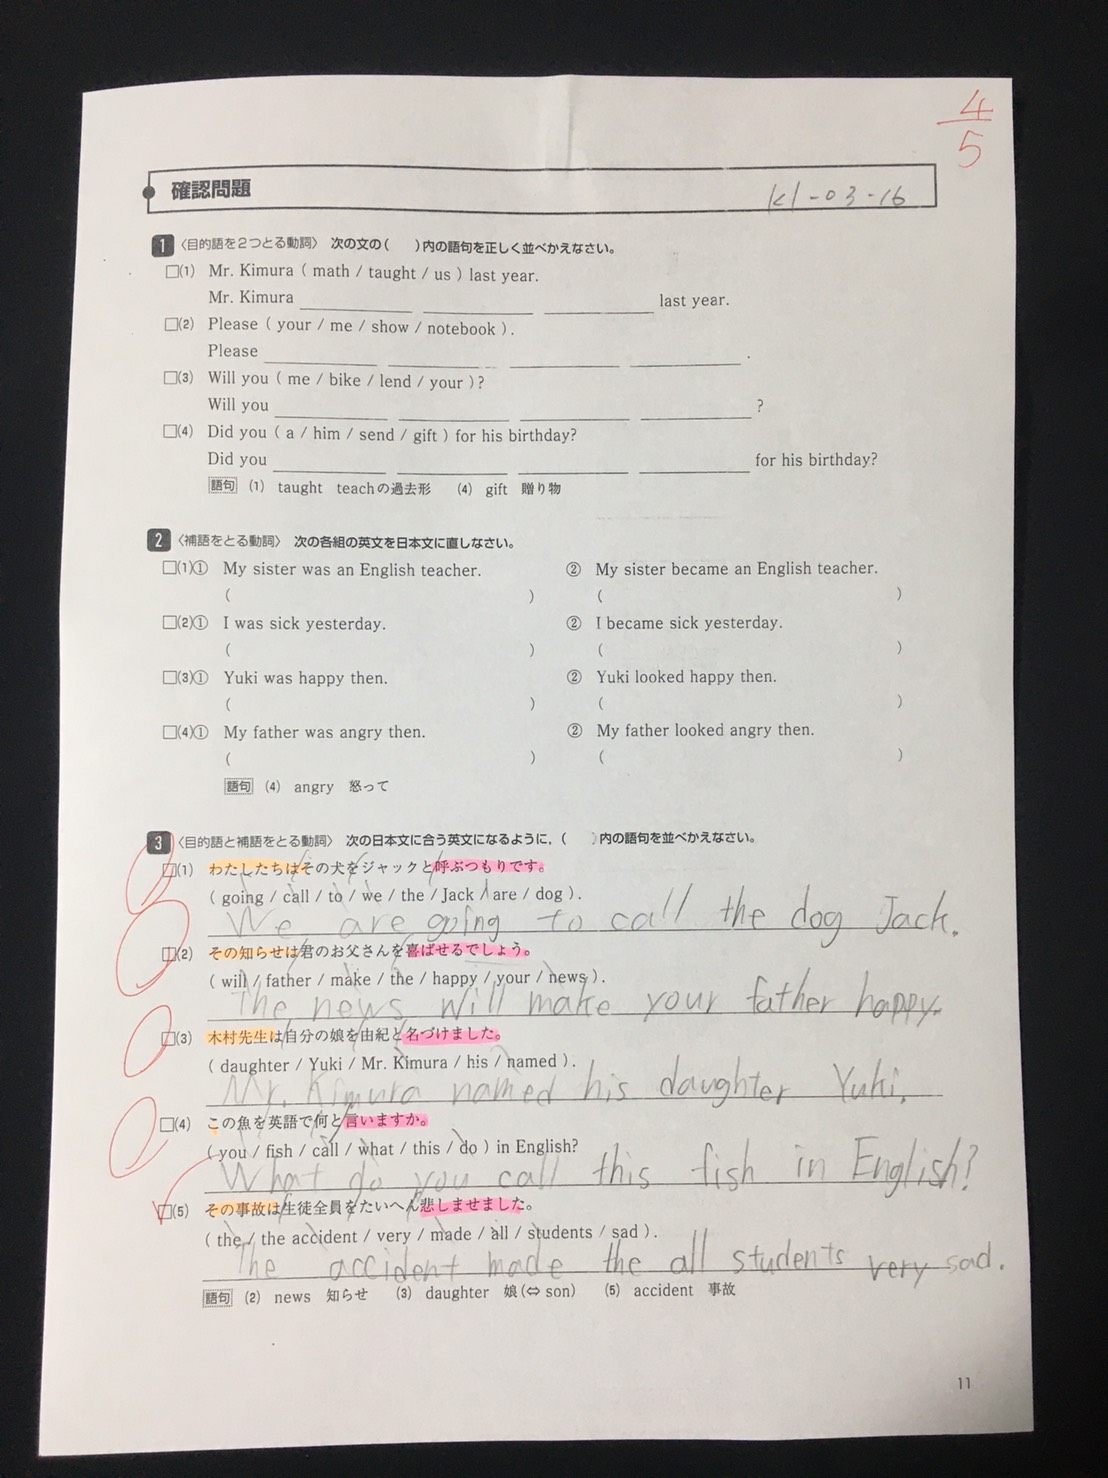 4
5
確認問題
k1-03-16
1 〈目的語を2つとる動詞〉 次の文の(　　)内の語句を正しく並べかえなさい。
□(1) Mr. Kimura ( math / taught / us ) last year.
Mr. Kimura ____ ____ ____ last year.
□(2) Please ( your / me / show / notebook ).
Please ____ ____ ____ ____ .
□(3) Will you ( me / bike / lend / your )?
Will you ____ ____ ____ ____ ?
□(4) Did you ( a / him / send / gift ) for his birthday?
Did you ____ ____ ____ ____ for his birthday?
語句 (1) taught teachの過去形 (4) gift 贈り物
2 〈補語をとる動詞〉 次の各組の英文を日本文に直しなさい。
□(1)① My sister was an English teacher. ② My sister became an English teacher.
(　　) (　　)
□(2)① I was sick yesterday. ② I became sick yesterday.
(　　) (　　)
□(3)① Yuki was happy then. ② Yuki looked happy then.
(　　) (　　)
□(4)① My father was angry then. ② My father looked angry then.
(　　) (　　)
語句 (4) angry 怒って
3 〈目的語と補語をとる動詞〉 次の日本文に合う英文になるように,(　　)内の語句を並べかえなさい。
□(1) わたしたちはその犬をジャックと呼ぶつもりです。
( going / call / to / we / the / Jack / are / dog ).
We are going to call the dog Jack.
□(2) その知らせは君のお父さんを喜ばせるでしょう。
( will / father / make / the / happy / your / news ).
The news will make your father happy.
□(3) 木村先生は自分の娘を由紀と名づけました。
( daughter / Yuki / Mr. Kimura / his / named ).
Mr. Kimura named his daughter Yuki.
□(4) この魚を英語で何と言いますか。
( you / fish / call / what / this / do ) in English?
What do you call this fish in English?
□(5) その事故は生徒全員をたいへん悲しませました。
( the / the accident / very / made / all / students / sad ).
The accident made the all students very sad.
語句 (2) news 知らせ (3) daughter 娘(⇔son) (5) accident 事故
11